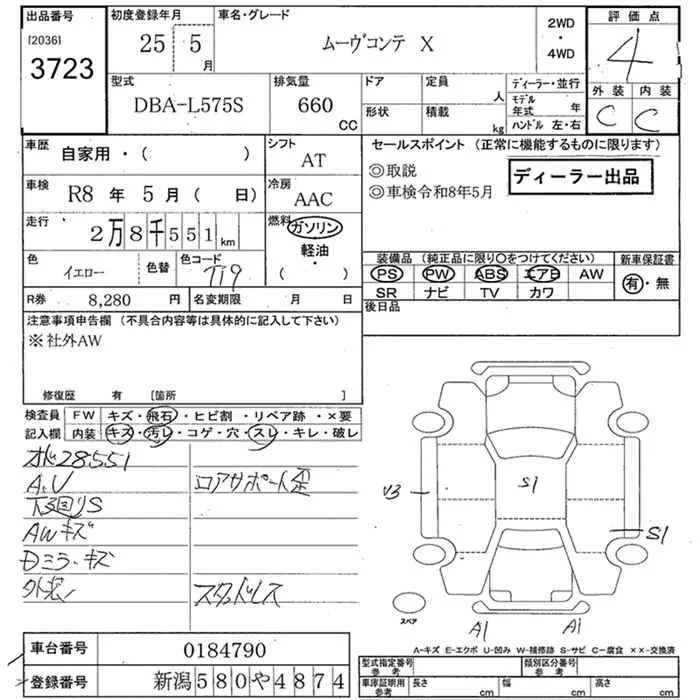 出品番号
[2036]
3723
初度登録年月
25 5月
車名・グレード
ムーヴコンテ X
2WD
・
4WD
評価点
4
外装 内装
C C
型式
DBA-L575S
排気量
660
CC
ドア
形状
定員
人
積載
kg
ディーラー・並行
モデル年式 年
ハンドル 左・右
車歴
自家用・( )
シフト
AT
車検
R8 年 5 月 ( 日)
冷房
AAC
走行
2万8千551km
燃料
ガソリン
軽油
・
( )
色
イエロー
色替
色コード
T19
R券 8,280 円
名変期限 月 日
セールスポイント (正常に機能するものに限ります)
◎取説
◎車検令和8年5月
ディーラー出品
装備品 (純正品に限り○をつけてください)
PS PW ABS エアB AW
SR ナビ TV カワ
新車保証書
有・無
後日品
注意事項申告欄 (不具合内容等は具体的に記入して下さい)
※社外AW
修復歴 有 [箇所 ]
検査員
記入欄
FW キズ・飛石・ヒビ割・リペア跡・×要
内装 キズ・汚レ・コゲ・穴・スレ・キレ・破レ
オド28551
A.U
コアサポート歪
下廻りS
AWキズ
Dミラーキズ
スタッドレス
S1
U3
S1
A1
A1
スペア
A-キズ E-エクボ U-凹み W-補修跡 S-サビ C-腐食 ××-交換済
車台番号 0184790
登録番号 新潟580や4874
型式指定番号
参考
類別区分番号
参考
車庫証明用
参考
長さ cm
幅 cm
高さ cm